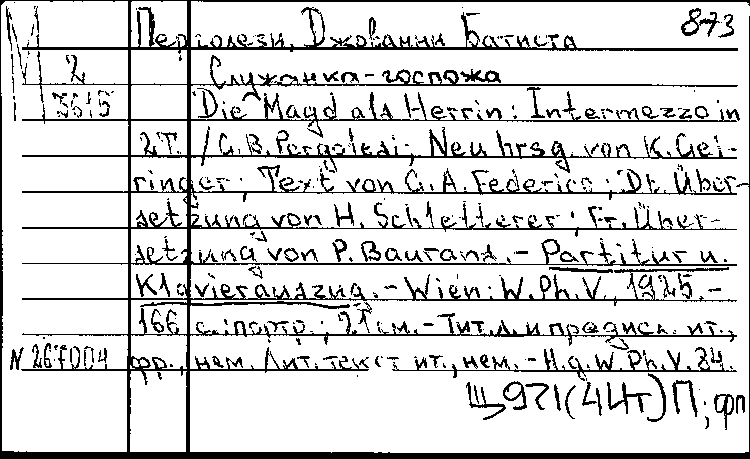 873
М Перголези, Джованни Батиста
2 Служанка-госпожа
3615 Die Magd als Herrin: Intermezzo in
2T. / G. B. Pergolesi; Neu hrsg. von K. Gei-
ringer; Text von G. A. Federico; Dt. Über-
setzung von H. Schletterer; Fr. Über-
setzung von P. Baurans. - Partitur u.
Klavierauszug. - Wien: W. Ph. V., 1925. -
166 с.: портр.; 21 см. - Тит. л. и предисл. ит.,
N 267004 фр., нем. Лит. текст ит., нем. - H. g. W. Ph. V. 84.
Щ971(4Ит)П; фп